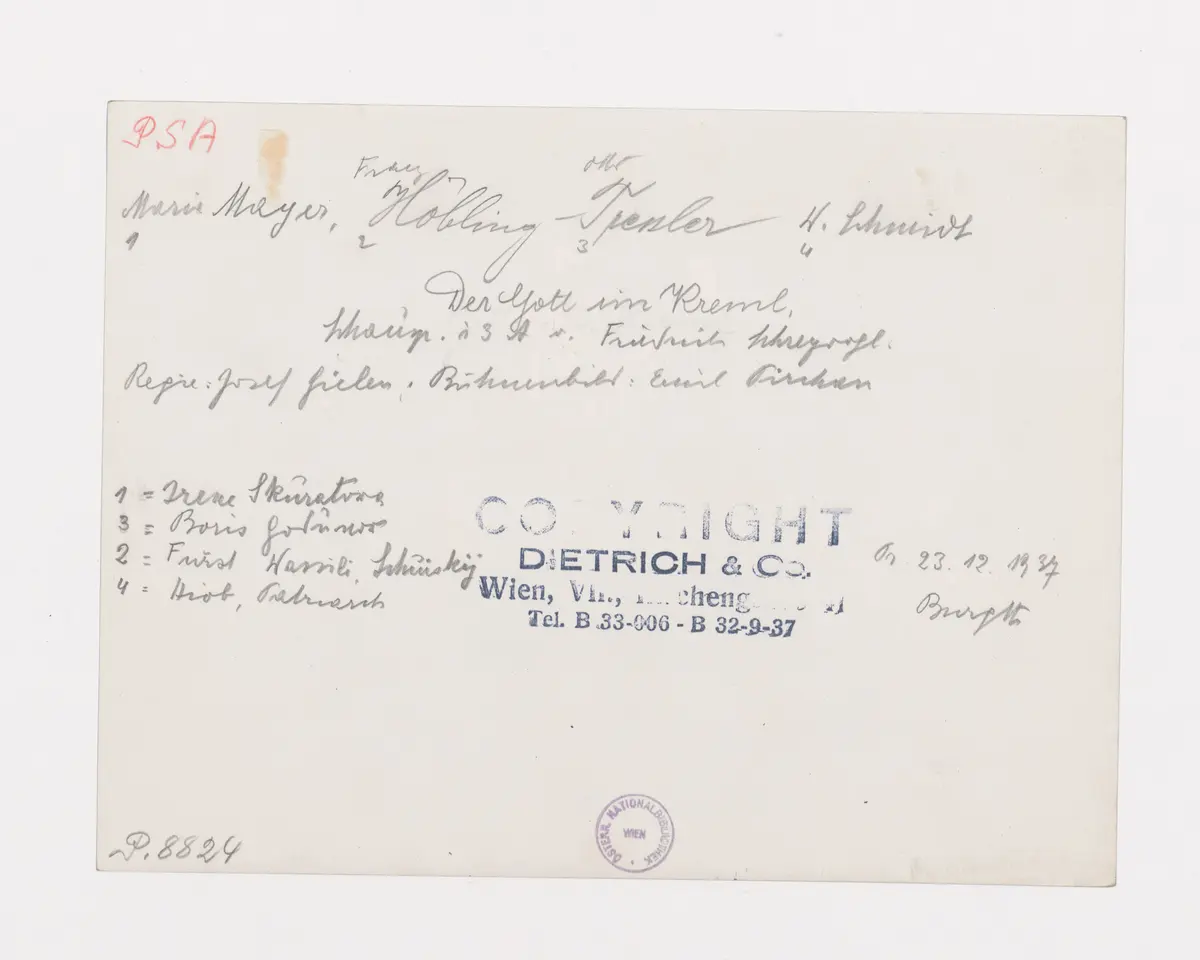 PSA
Franz Otto
Maria Mayer, Höbling - Tressler W. Schmidt
1 2 3 4
Der Gott im Kreml,
Schausp. i 3 A v. Friedrich Schreyvogl.
Regie: Josef Gielen, Bühnenbild: Emil Pirchan
1 = Irene Skuratowa
3 = Boris Godunow
2 = Fürst Wassili, Schuiskÿ
4 = Hiob, Patriarch
COPYRIGHT
DIETRICH & Co.
Wien, VIII.,
Tel. B 33-006 - B 32-9-37
Pr. 23. 12. 1937
Burgth
P. 8824
ÖSTERR. NATIONALBIBLIOTHEK
WIEN